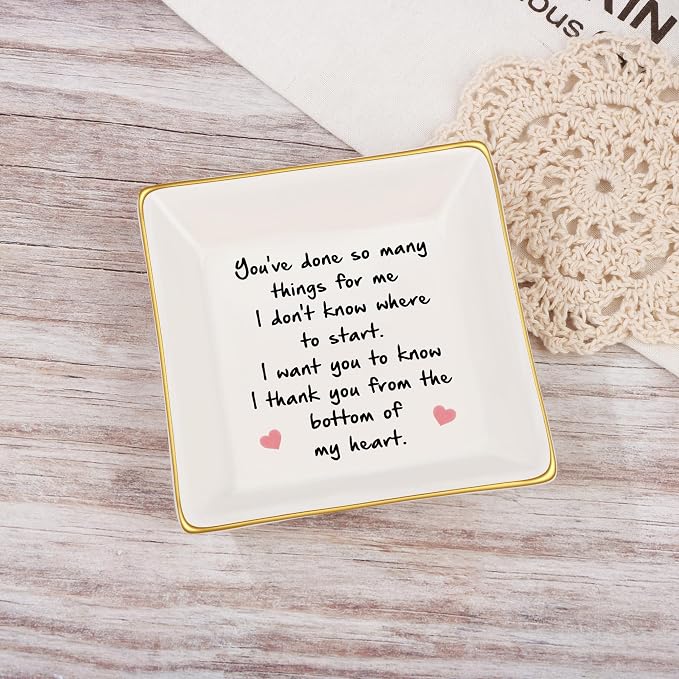 You've done so many
things for me
I don't know where
to start.
I want you to know
I thank you from the
bottom of
my heart.